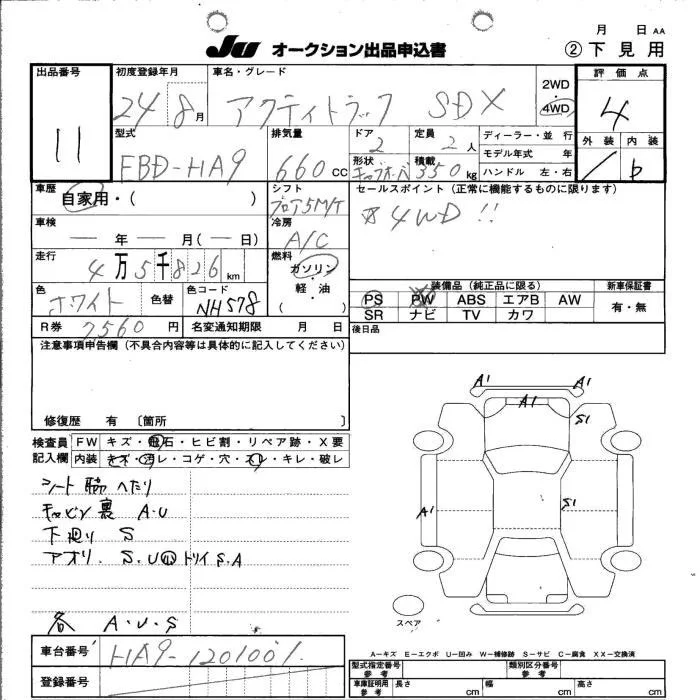 月 日 AA
JU オークション出品申込書
② 下見用
出品番号
11
初度登録年月
24 8月
車名・グレード
アクティトラック SDX
2WD
・
4WD
評価点
4
外装 内装
/ b
型式
EBD-HA9
排気量
660 CC
ドア
2
定員
2 人
ディーラー・並 行
モデル年式 年
ハンドル 左・右
形状
積載
350 kg
車歴
自家用・( )
シフト
フロア5M/T
セールスポイント(正常に機能するものに限ります)
☆4WD!!
車検
— 年 — 月(— 日)
冷房
A/C
走行
4万5千826 km
燃料
ガソリン
・
軽・油
( )
色
ホワイト
色替
色コード
NH578
装備品(純正品に限る)
新車保証書
PS PW ABS エアB AW
SR ナビ TV カワ
有・無
R券 7560 円
名変通知期限 月 日
後日品
注意事項申告欄(不具合内容等は具体的に記入してください)
修復歴 有 〔箇所 〕
検査員
記入欄
FW キズ・飛石・ヒビ割・リペア跡・X要
内装 キズ・汚レ・コゲ・穴・スレ・キレ・破レ
シート 脇 へたり
キャビン裏 A.U
下廻り S
アオリ. S.U
トリイ S.A
各 A.U.S
A1 A1
A1
S1
S1
A1
スペア
A-キズ E-エクボ U-凹み W-補修跡 S-サビ C-腐食 XX-交換済
車台番号
HA9-1201001
登録番号
型式指定番号
参考
類別区分番号
参考
車庫証明用
参考
長さ cm
幅 cm
高さ cm